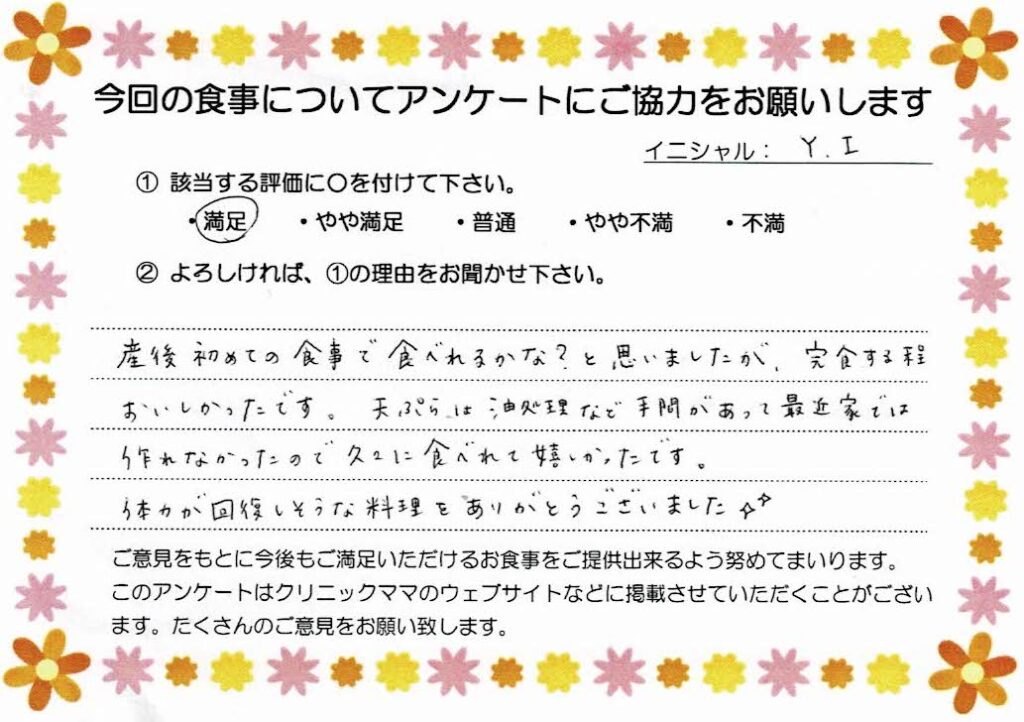 今回の食事についてアンケートにご協力をお願いします
イニシャル： Y.I
① 該当する評価に○を付けて下さい。
・満足 ・やや満足 ・普通 ・やや不満 ・不満
② よろしければ、①の理由をお聞かせ下さい。
産後初めての食事で食べれるかな?と思いましたが、完食する程
おいしかったです。 天ぷらは油処理など手間があって最近家では
作れなかったので久々に食べれて嬉しかったです。
体力が回復しそうな料理をありがとうございました
ご意見をもとに今後もご満足いただけるお食事をご提供出来るよう努めてまいります。
このアンケートはクリニックママのウェブサイトなどに掲載させていただくことがござい
ます。たくさんのご意見をお願い致します。